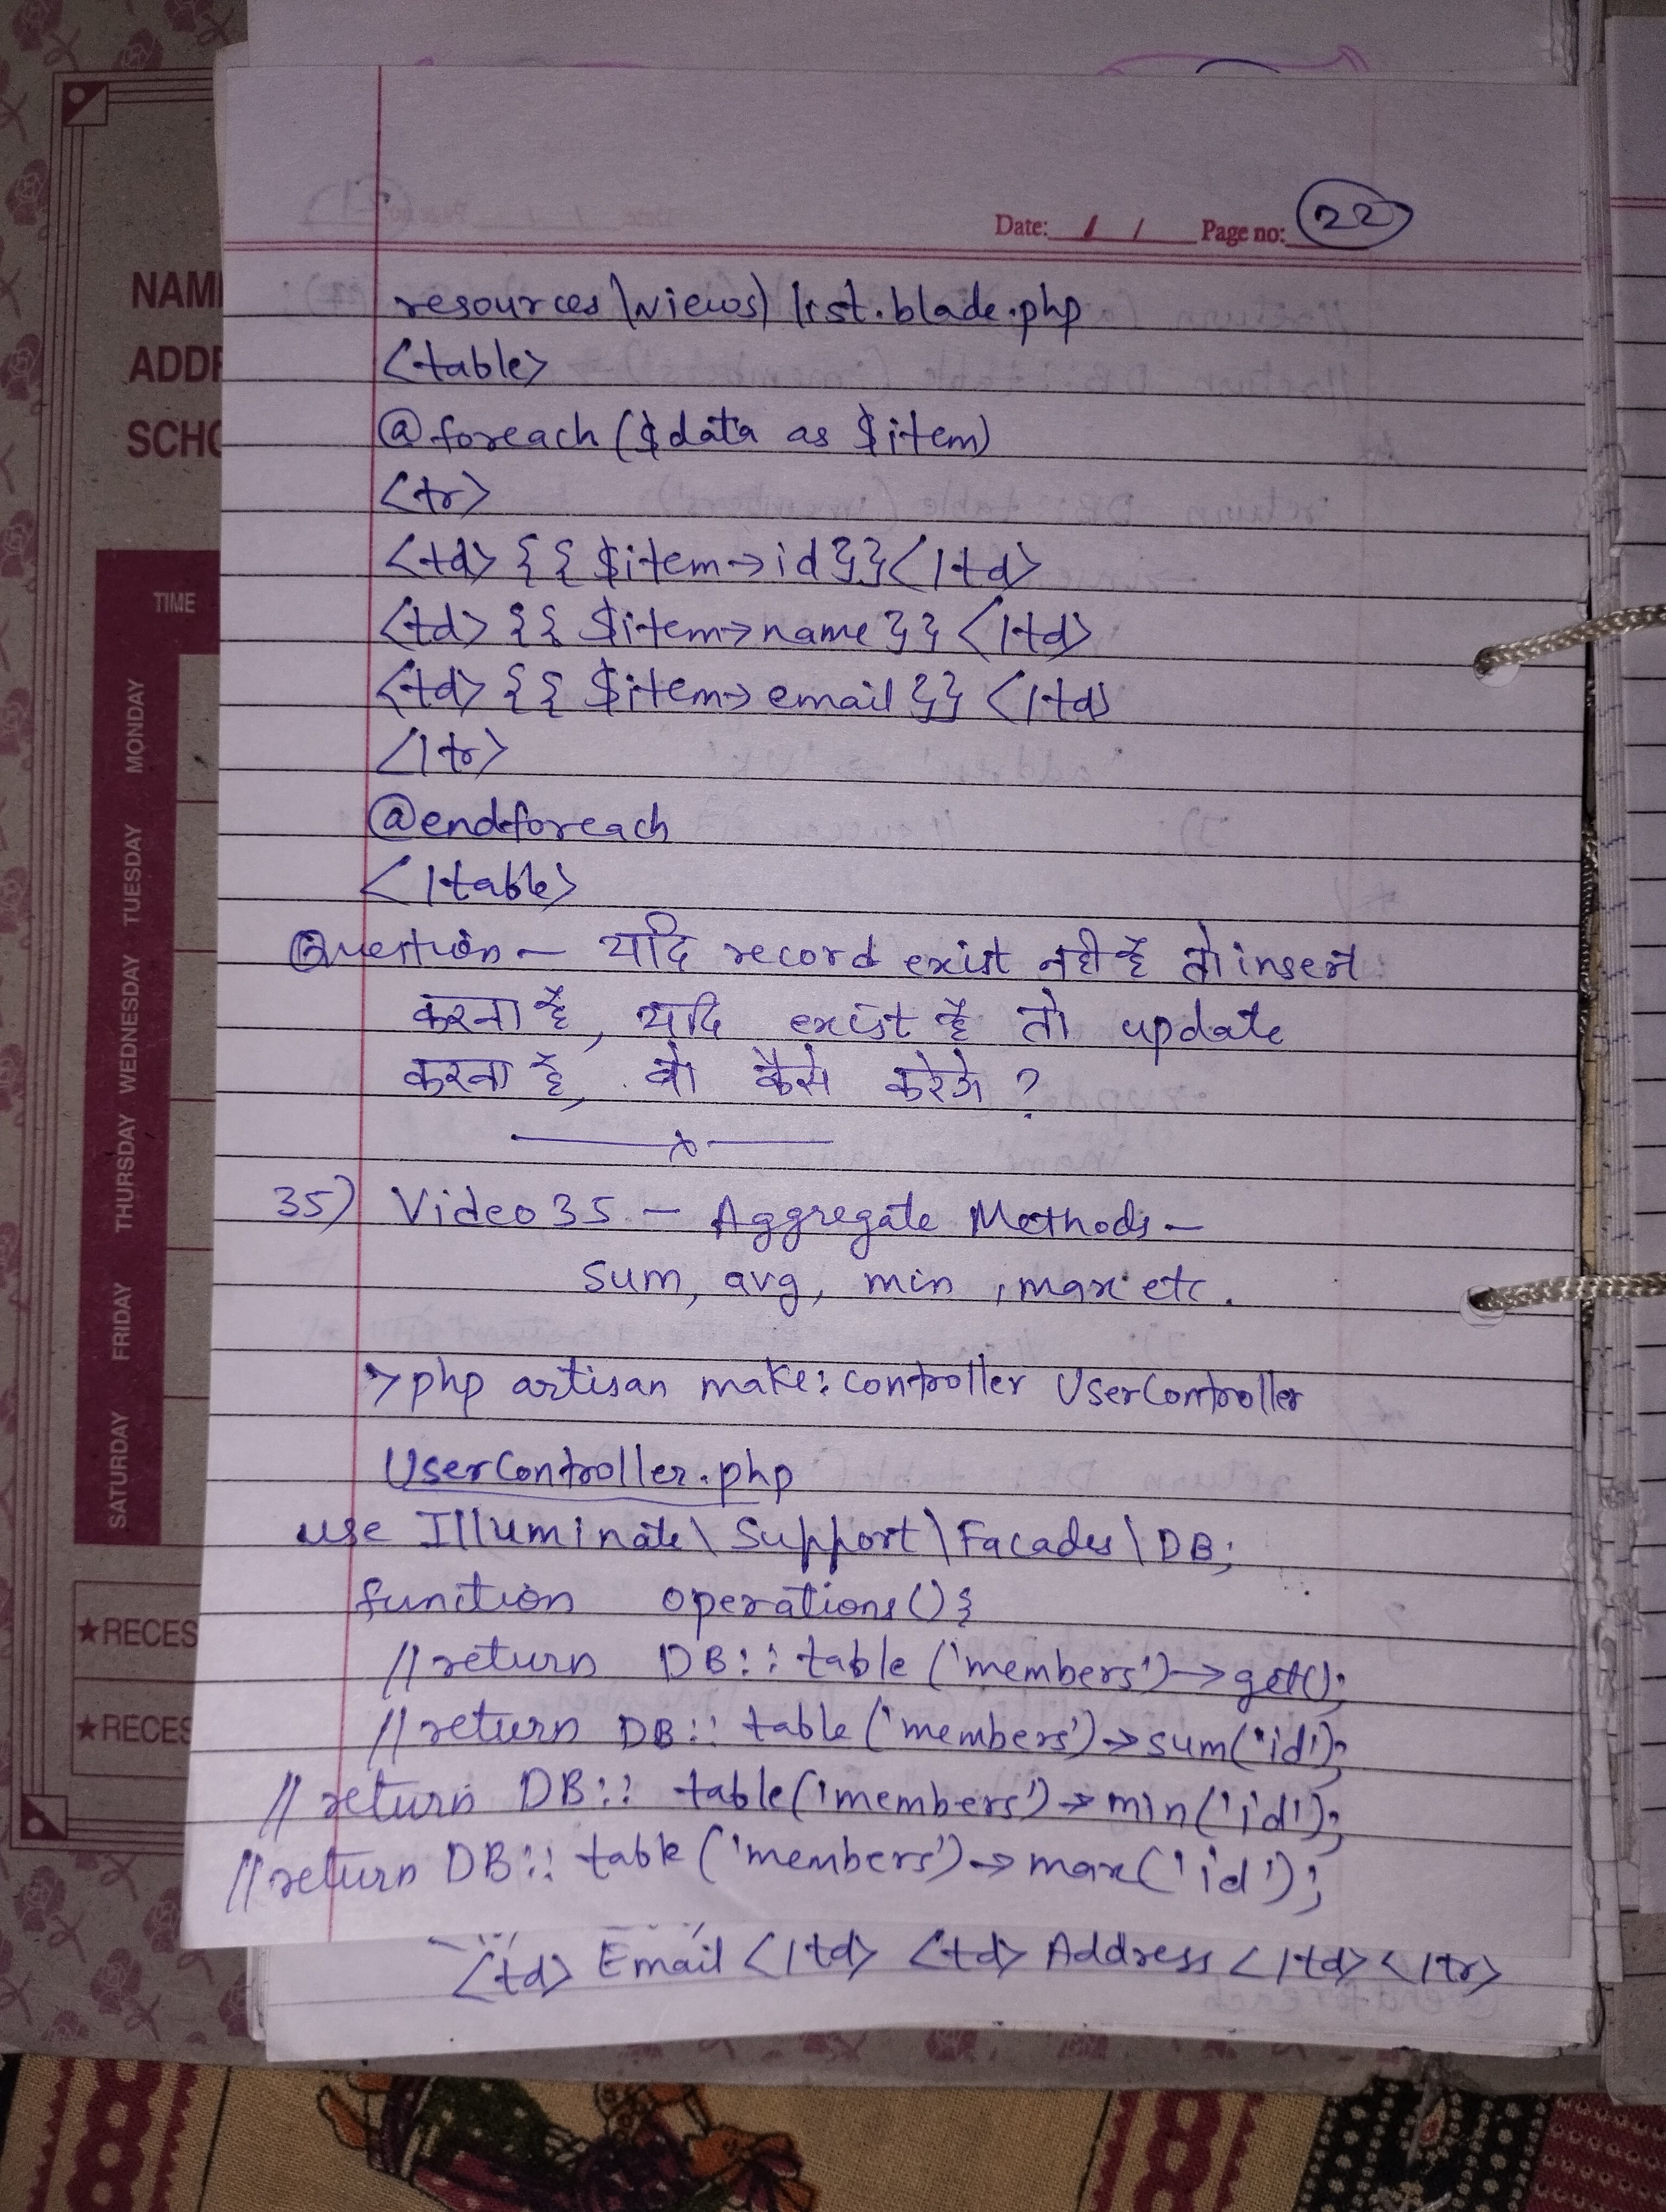 NAM
ADD
SCHO
TIME
MONDAY
TUESDAY
WEDNESDAY
THURSDAY
FRIDAY
SATURDAY
★RECES
★RECES
Date: / / Page no: 22
resources\views\list.blade.php
<table>
@foreach($data as $item)
<tr>
<td>{{$item->id}}</td>
<td>{{$item->name}}</td>
<td>{{$item->email}}</td>
</tr>
@endforeach
</table>
Question – यदि record exist नही है तो insert
करना है, यदि exist है तो update
करना है, वो कैसे करेगे ?
——x——
35) Video 35 – Aggregate Methods –
sum, avg, min, max etc.
>php artisan make:controller UserController
UserController.php
use Illuminate\Support\Facades\DB;
function operations(){
//return DB::table('members')->get();
//return DB::table('members')->sum('id');
// return DB::table('members')->min('id');
//return DB::table('members')->max('id');
<td>Email</td> <td>Address</td></tr>